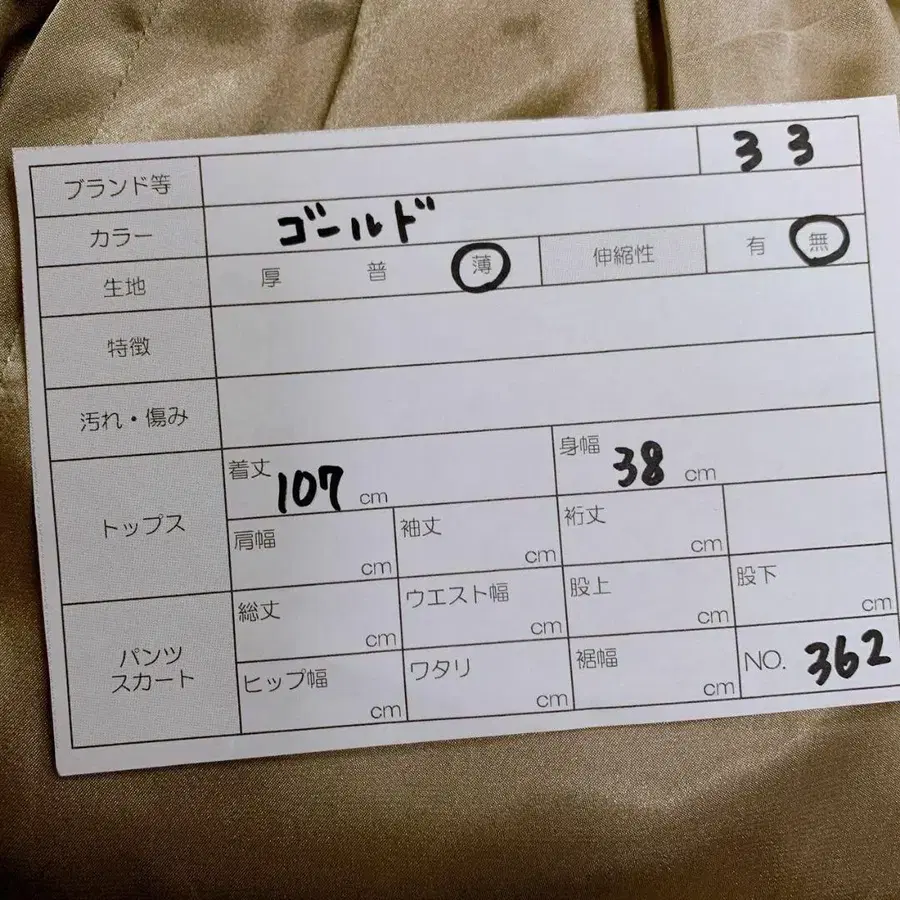 ブランド等 33
カラー ゴールド
生地 厚 普 薄 伸縮性 有 無
特徴
汚れ・傷み
トップス 着丈 107 cm 身幅 38 cm
肩幅 cm 袖丈 cm 裄丈 cm
パンツ スカート 総丈 cm ウエスト幅 cm 股上 cm 股下 cm
ヒップ幅 cm ワタリ cm 裾幅 cm NO. 362